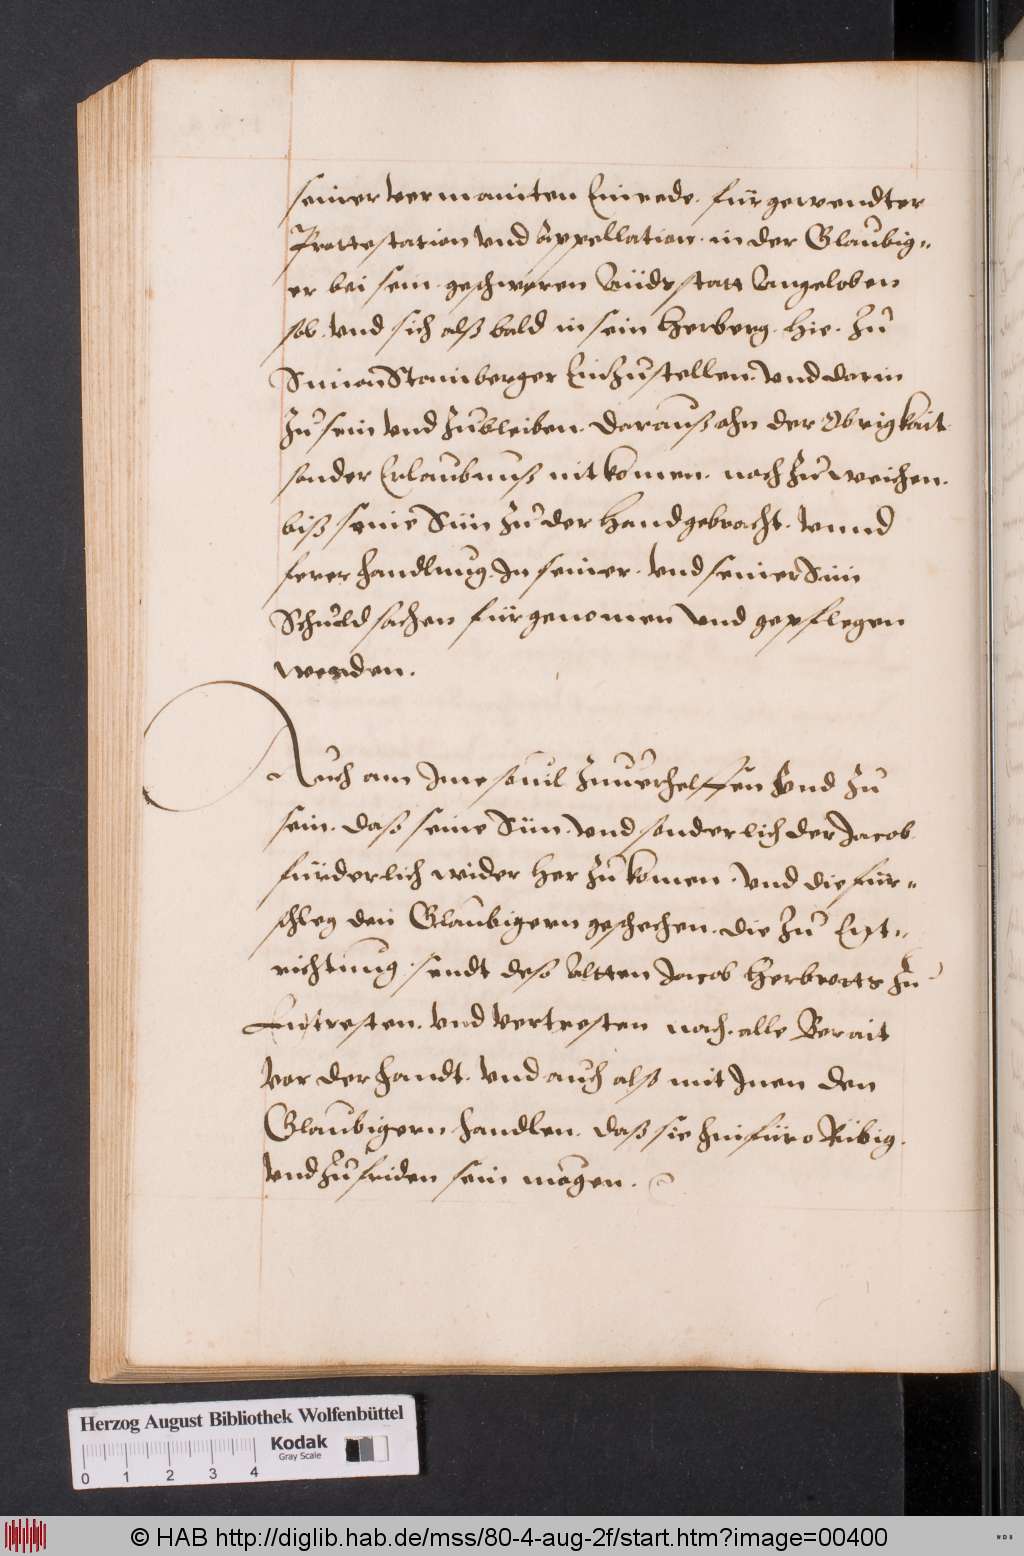 seiner vermainten Einrede. fürgewendter
Prottestation vnd Appellation. in der Glaubig=
er bei sein. geschwren Aüdx statt Angeloben
sol. vnd sich alß bald in sein Herberg. hie. zŭ
Simon Stainberger Einzŭstellen. vnd darin
zŭ sein vnd zŭbleiben. darauß ohn der Obrigkait
sonder Erlaubnuß nit komen. noch zŭ weichen.
biß seine Sün zŭ der Hand gebracht. vnnd
ferer handlung. In seiner. vnd seiner Sün
Schŭld sachen fürgenomen vnd gepflegen
werden.
Auch am Ime souil zuuerhelffen vnd zŭ
sein. daß seine Sün. vnd sonderlich der Jacob
fürderlich wider her zŭ komen. vnd die für=
schleg den Glaubigern geschehen. die zŭ Ent=
richtung. sendt deß Altten Jacob Herbrotts zŭ
vnd vertresten noch. alle Berait
vor der handt. vnd auch alß mit Inen den
Glaubigern handlen. daß sie hinfüro Rübig.
vnd zŭfriden sein mögen.
Herzog August Bibliothek Wolfenbüttel
Kodak
Gray Scale
0 1 2 3 4
© HAB http://diglib.hab.de/mss/80-4-aug-2f/start.htm?image=00400